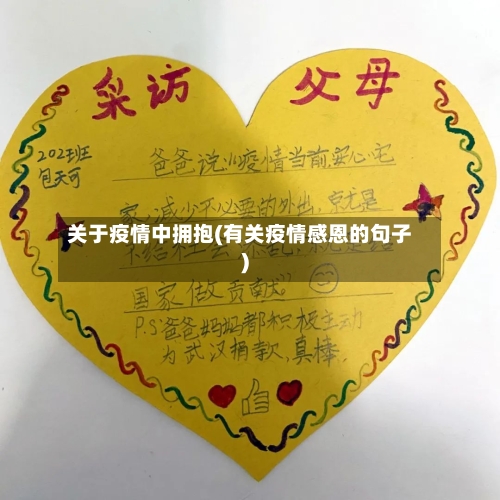 采访 父母
202班
包天可
爸爸说:“疫情当前,安心宅
家,减少不必要的外出,就是
关于疫情中拥抱(有关疫情感恩的句子
)
不给社会
国家做贡献”
P.S爸爸妈妈都积极主动
为武汉捐款,真棒.